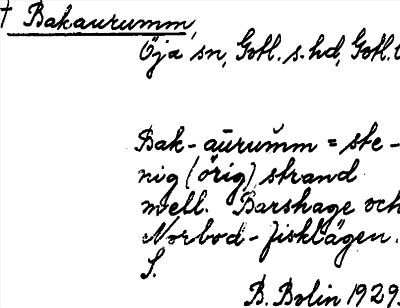 † Bakaurumm,
Öja sn, Gotl. s. hd, Gotl. l
Bak-aurumm = ste-
nig (örig) strand
mell. Barshage och
Norbod-fisklägen.
S.
B. Bolin 1929.